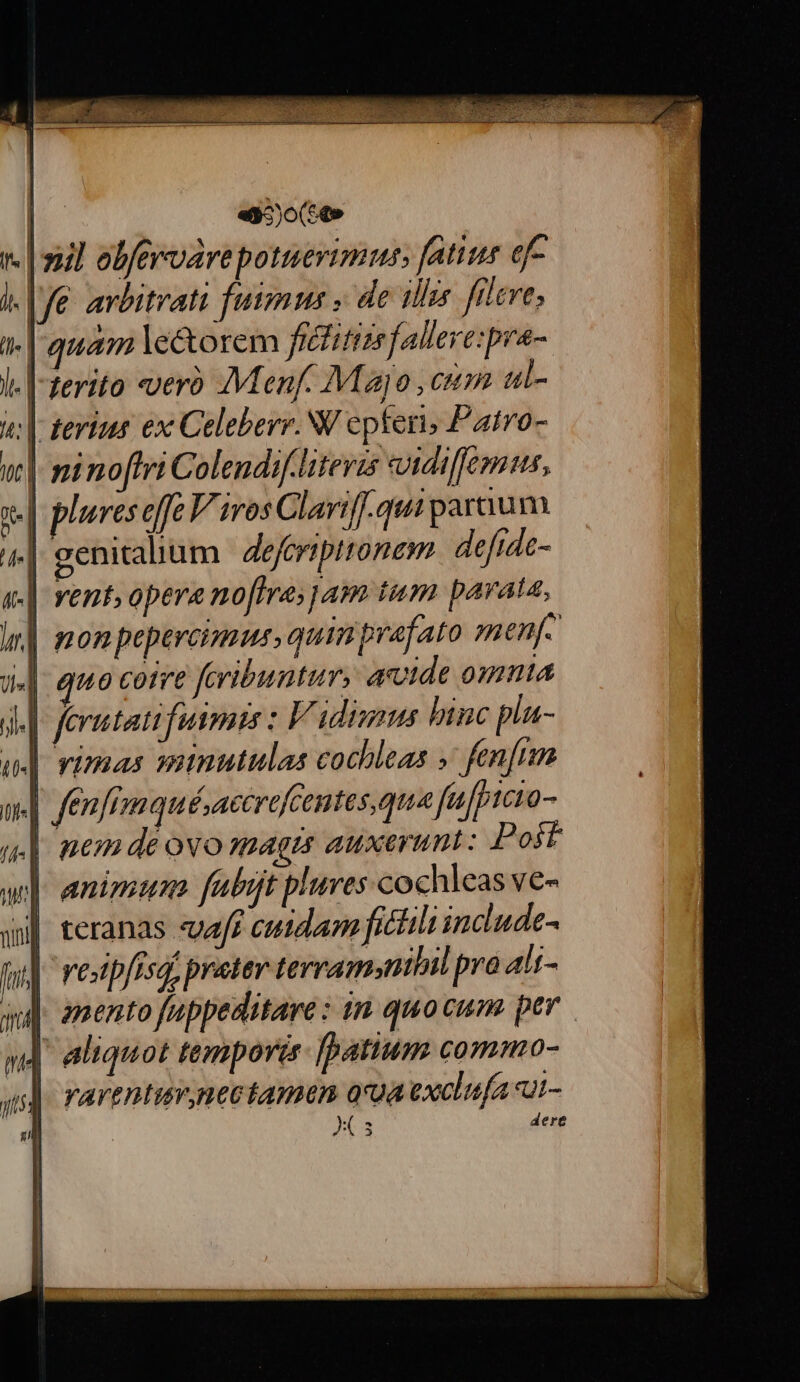 )o(
nil observare potuerimus, satius es-
se arbitrati fuimus, de illis silere,
quàm lectorem fictitiis fallere: præ-
terito verò Mens. Majo, cùm ul-
terius ex Celeberr. Wepferi, Patro-
ni nostri Colendiss. literis vidissemus,
plures esse Viros Clariss. qui partium
genitalium descriptionem deside-
rent, opera nostra, jam tum parata,
non pepercimus, quin præfato mens.
quo coire scribuntur, avide omnia
scrutati fuimus: Vidimus hinc plu-
rimas minutulas cochleas, sensim
sensimqué, accrescentes, quæ suspicio-
nem de ovo magis auxerunt: Post
animum subijt plures cochleas ve-
teranas vasi cuidam fictili include-
re, ipsisq; præter terram, nihil pro ali-
mento suppeditare: in quo cum per
aliquot temporis spatium commo-
rarentur, nec tamen ova exclusa vi-
)( 3 dere